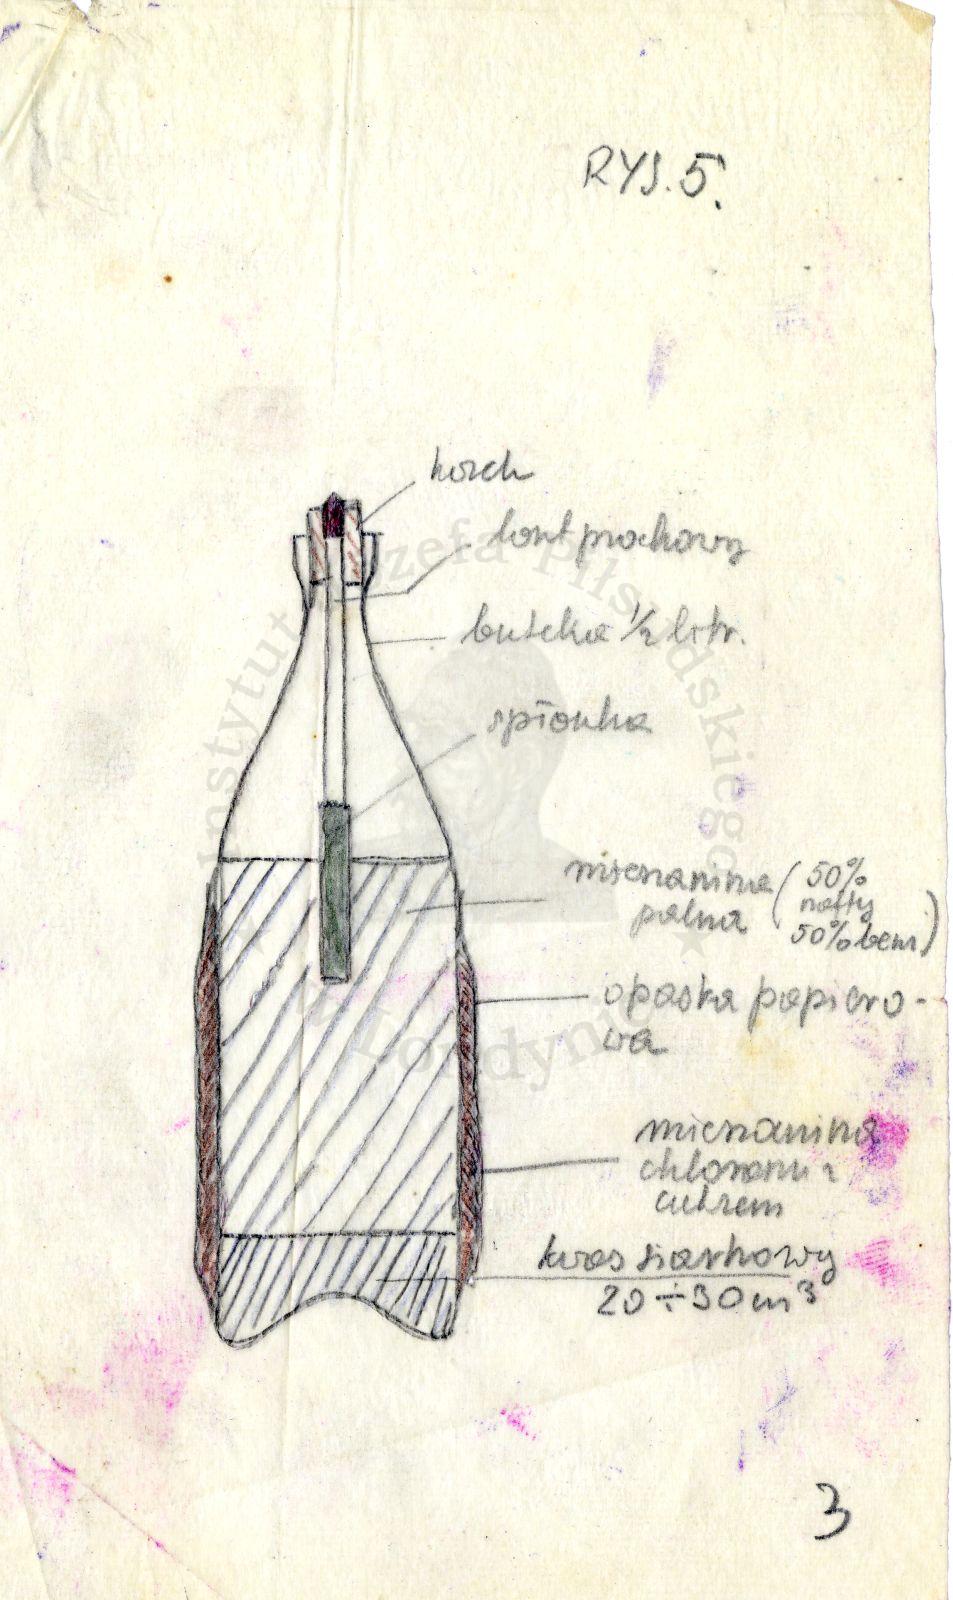 RYS. 5.
korek
lont prochowy
butelka ½ litr.
spłonka
mieszanina
palna
(50%
nafty
50% benz)
opaska papiero-
wa
mieszanina
chloranu z
cukrem
kwas siarkowy
20÷30 cm³
3
Instytut Józefa Piłsudskiego
w Londynie